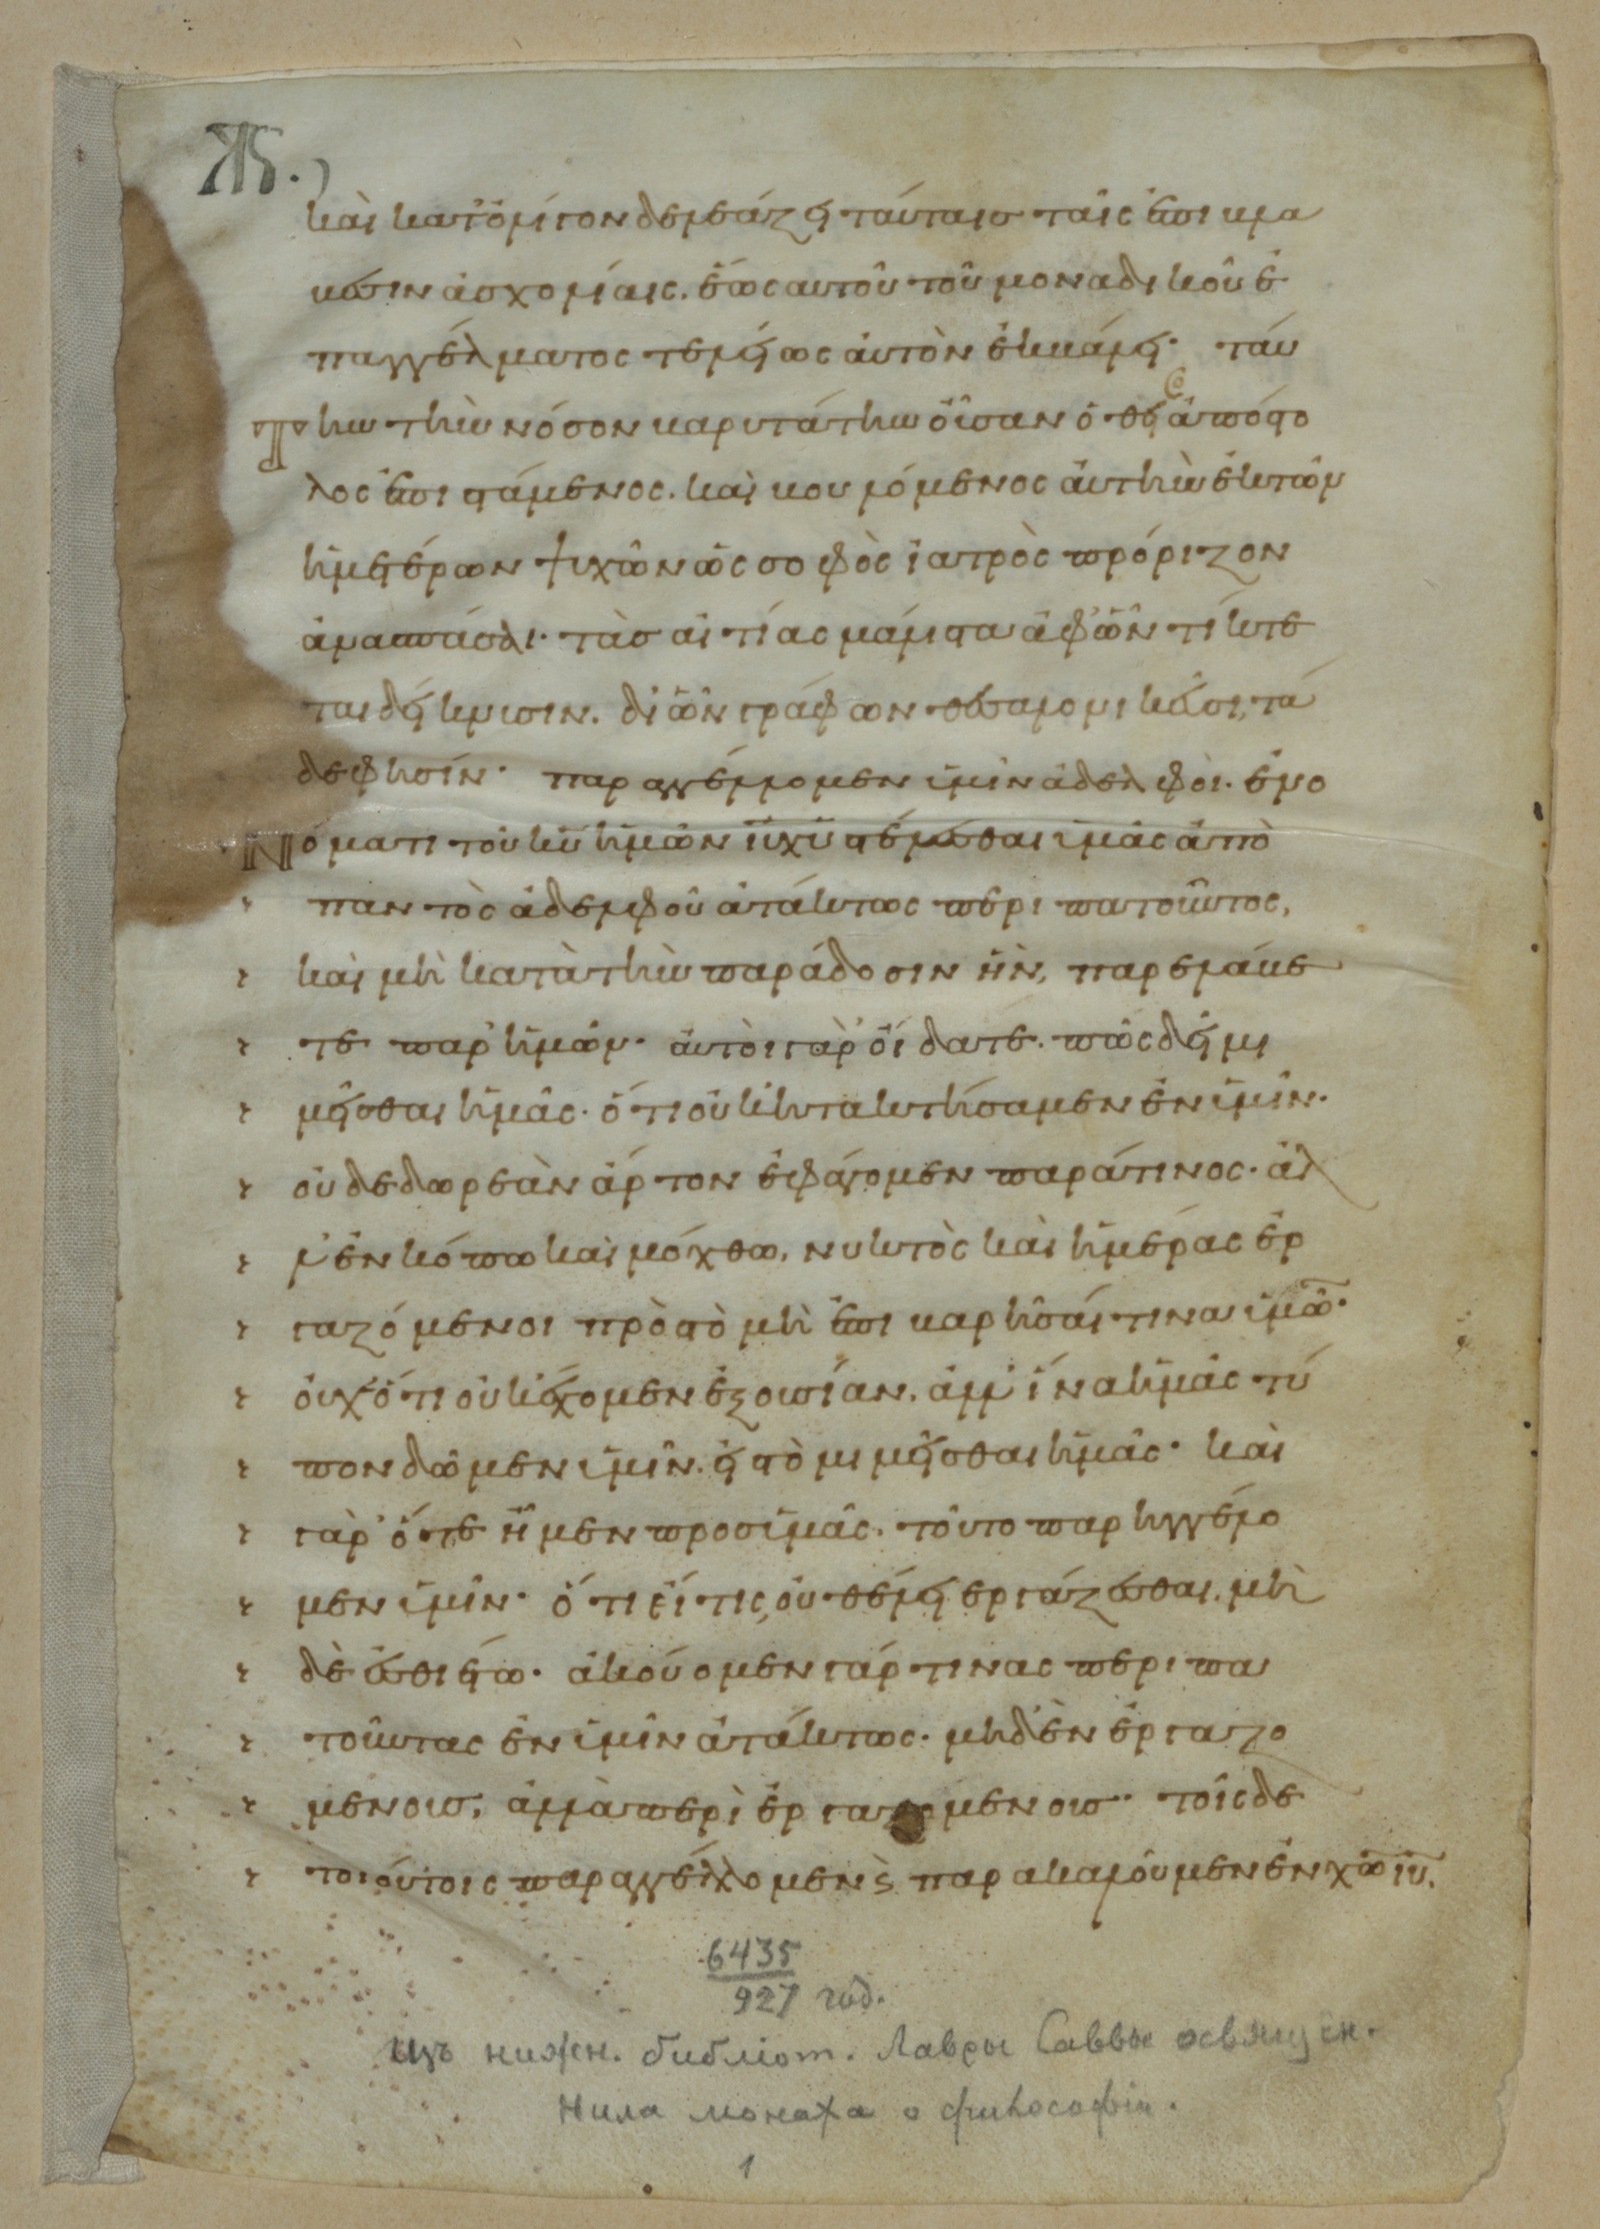 ΤϚ.
καὶ κατ' ὀλίγον δελεάζει ταύταις ταῖς ἐπιβλα
βέσιν ἀσχολίαις. ἕως αυτοῦ τοῦ μοναδικοῦ ἐ
παγγέλματος τελείως ἀυτὸν ἐκβάλει· τάυ
Την τὴν νόσον βαρυτάτην οὖσαν ὁ θεῖος ἀπόστο
λος ἐπιστάμενος. καὶ βουλόμενος ἀυτὴν ἐκ τῶν
ἡμετέρων ψυχῶν ὡς σοφὸς ἰατρὸς πρόριζον
ἀνασπάσαι· τὰσ αἰτίας μάλιστα ἀφ' ὧν τίκτε
ται δείκνυσιν. δι' ὧν γράφων θεσσαλονικεῦσι, τά
δε φησίν· παραγγέλλομεν ὑμῖν ἀδελφοὶ. ἐν ὀ
Νοματι τοῦ κυ̅ ἡμῶν ιυ̅ χυ̅ στέλλεσθαι ὑμᾶς ἀπὸ
παντὸς ἀδελφοῦ ἀτάκτως περιπατοῦντος,
καὶ μὴ κατὰ τὴν παράδοσιν ἣν, παρελάβε
τε παρ' ἡμῶν· ἀυτοὶ γὰρ οἴδατε. πῶς δεῖ μι
μεῖσθαι ἡμᾶς· ὅτι οὐκ ἠτακτήσαμεν ἐν ὑμῖν·
οὐδὲ δωρεὰν ἄρτον ἐφάγομεν παρά τινος· ἀλ
λ' ἐν κόπω καὶ μόχθω, νυκτὸς καὶ ἡμέρας ἐρ
γαζόμενοι πρὸς τὸ μὴ ἐπιβαρῆσαί τινα ὑμῶ̅·
οὐχ' ὅτι οὐκ ἔχομεν ἐξουσίαν. ἀλλ' ἵνα ἡμᾶς τύ
πον δῶμεν ὑμῖν. εἰς τὸ μιμεῖσθαι ἡμᾶς· καὶ
γὰρ ὅτε ἦμεν προσ ὑμᾶς. τοῦτο παρηγγέλο
μεν ὑμῖν· ὅτι εἴ τις, ου θέλει εργάζεσθαι. μὴ
δὲ ἐσθιέτω· ἀκούομεν γάρ τινας περιπα
τοῦντας ἐν ὑμῖν ἀτάκτως· μηδὲν ἐργαζο
μενους, ἀλλὰ περὶ ἐργαζομενους· τοῖς δε
τοιούτοις παραγγέλλομεν ϗ παρακαλοῦμεν ἐν χω̅ ιυ̅.
6435
927 год.
изъ нижн. библіот. Лавры Саввы освящен.
Нила монаха о философіи.
1